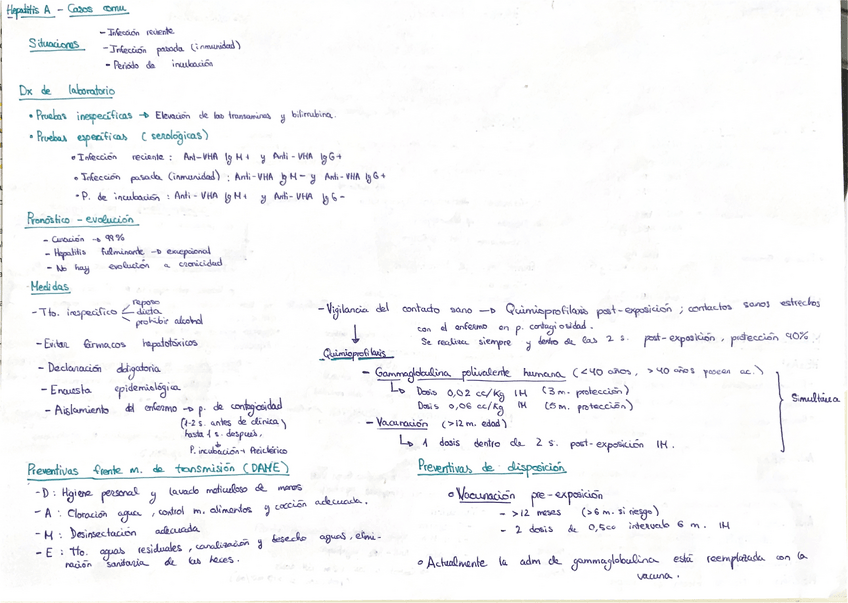 Hepatitis A - Casos comu
Situaciones
- Infección reciente
- Infección pasada (inmunidad)
- Periodo de incubación
Dx de laboratorio
• Pruebas inespecíficas → Elevación de las transaminas y bilirrubina.
• Pruebas específicas (serológicas)
• Infección reciente : Anti-VHA Ig M + y Anti - VHA Ig G +
• Infección pasada (inmunidad) : Anti - VHA Ig M - y Anti - VHA Ig G +
• P. de incubación : Anti - VHA Ig M + y Anti - VHA Ig G -
Pronóstico - evolución
- Curación → 99%
- Hepatitis fulminante → excepcional
- No hay evolución a cronicidad
Medidas
- Tto. inespecífico
reposo
dieta
prohibir alcohol
- Evitar fármacos hepatotóxicos
- Declaración obligatoria
- Encuesta epidemiológica
- Aislamiento del enfermo → p. de contagiosidad
(1-2 s. antes de clínica y
hasta 1 s. después.
P. incubación + Preictérico
- Vigilancia del contacto sano → Quimioprofilaxis post-exposición ; contactos sanos estrechos
con el enfermo en p. contagiosidad.
Se realiza siempre y dentro de las 2 s. post-exposición, protección 90%.
Quimioprofilaxis
- Gammaglobulina polivalente humana (<40 años, >40 años poseen ac.)
Dosis 0,02 cc/Kg IM (3 m. protección)
Dosis 0,06 cc/Kg IM (5 m. protección)
- Vacunación (>12 m. edad)
1 dosis dentro de 2 s. post-exposición IM.
Simultánea
Preventivas frente m. de transmisión (DAME)
- D : Higiene personal y lavado meticuloso de manos
- A : Cloración agua, control m. alimentos y cocción adecuada.
- M : Desinsectación adecuada
- E : Tto. aguas residuales, canalización y desecho aguas, elimi-
nación sanitaria de las heces.
Preventivas de disposición
• Vacunación pre-exposición
- >12 meses (>6 m. si riesgo)
- 2 dosis de 0,5cc intervalo 6 m. IM
• Actualmente la adm de gammaglobulina está reemplazada con la
vacuna.